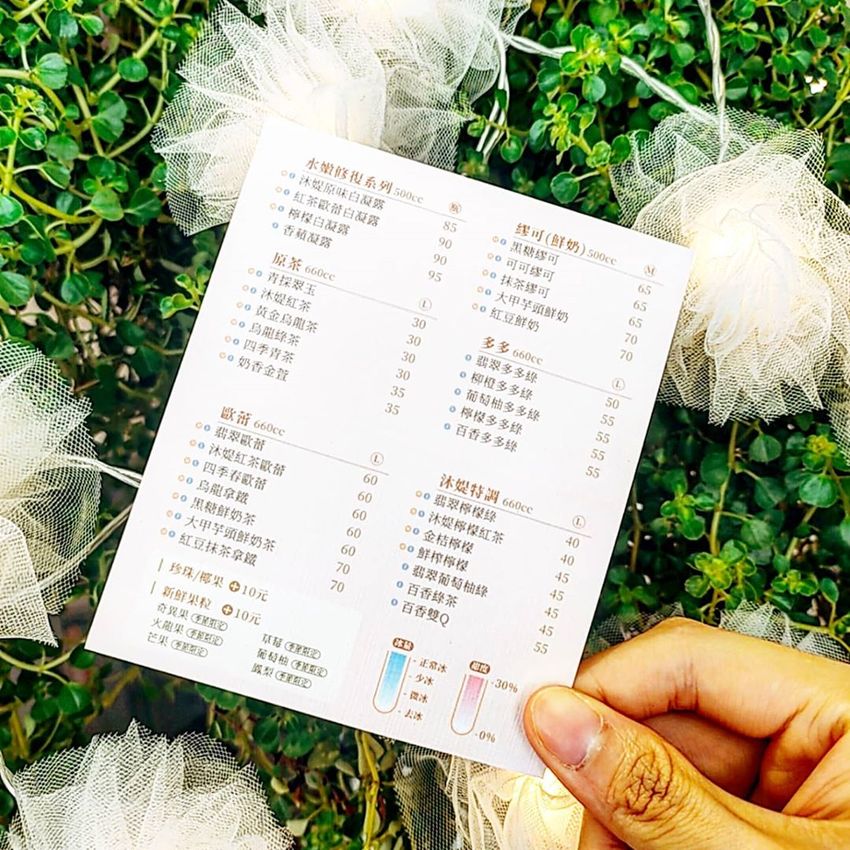 水嫩修復系列 500cc 瓶
沐媞原味白凝露 85
紅茶歐蕾白凝露 90
檸檬白凝露 90
香蘋凝露 95
原茶 660cc L
青採翠玉 30
沐媞紅茶 30
黃金烏龍茶 30
烏龍綠茶 30
四季青茶 35
奶香金萱 35
歐蕾 660cc L
翡翠歐蕾 60
沐媞紅茶歐蕾 60
四季春歐蕾 60
烏龍拿鐵 60
黑糖鮮奶茶 60
大甲芋頭鮮奶茶 70
紅豆抹茶拿鐵 70
珍珠/椰果 +10元
新鮮果粒 +10元
奇異果 季節限定
火龍果 季節限定
芒果 季節限定
草莓 季節限定
葡萄柚 季節限定
鳳梨 季節限定
繆可(鮮奶) 500cc M
黑糖繆可 65
可可繆可 65
抹茶繆可 65
大甲芋頭鮮奶 70
紅豆鮮奶 70
多多 660cc L
翡翠多多綠 50
柳橙多多綠 55
葡萄柚多多綠 55
檸檬多多綠 55
百香多多綠 55
沐媞特調 660cc L
翡翠檸檬綠 40
沐媞檸檬紅茶 40
金桔檸檬 45
鮮榨檸檬 45
翡翠葡萄柚綠 45
百香綠茶 45
百香雙Q 55
冰量
正常冰
少冰
微冰
去冰
甜度
30%
0%